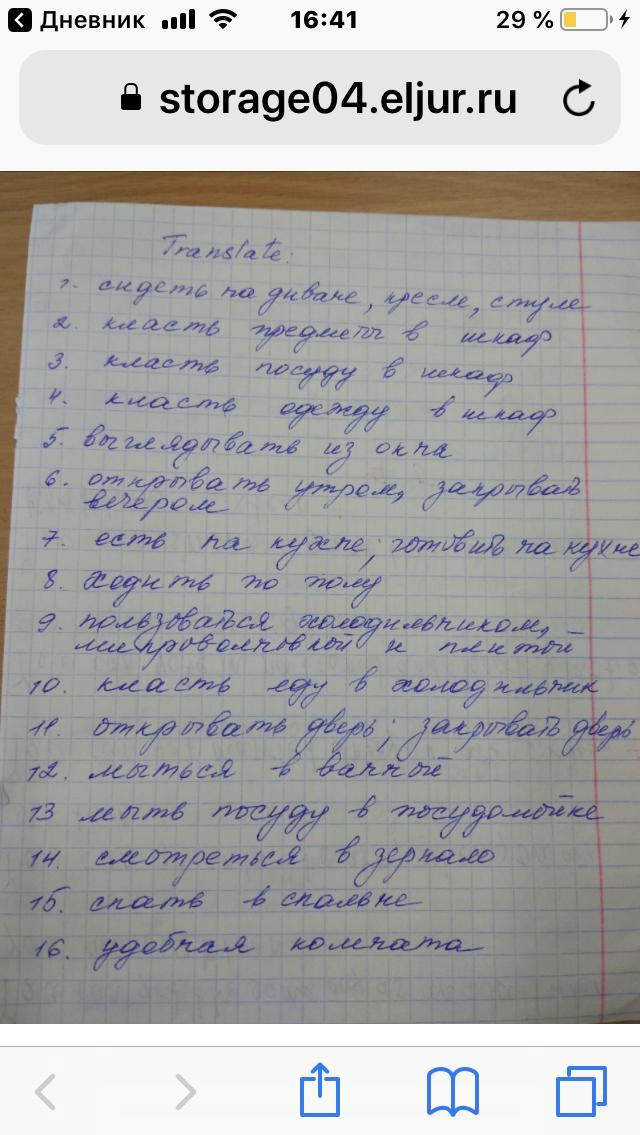 Дневник 16:41 29 %
storage04.eljur.ru
Translate:
1. сидеть на диване, кресле, стуле
2. класть предметы в шкаф
3. класть посуду в шкаф
4. класть одежду в шкаф
5. выглядывать из окна
6. открывать утром, закрывать
вечером
7. есть на кухне; готовить на кухне
8. ходить по полу
9. пользоваться холодильником,
микроволновкой и плитой
10. класть еду в холодильник
11. открывать дверь; закрывать дверь
12. мыться в ванной
13 мыть посуду в посудомойке
14. смотреться в зеркало
15. спать в спальне
16. удобная комната